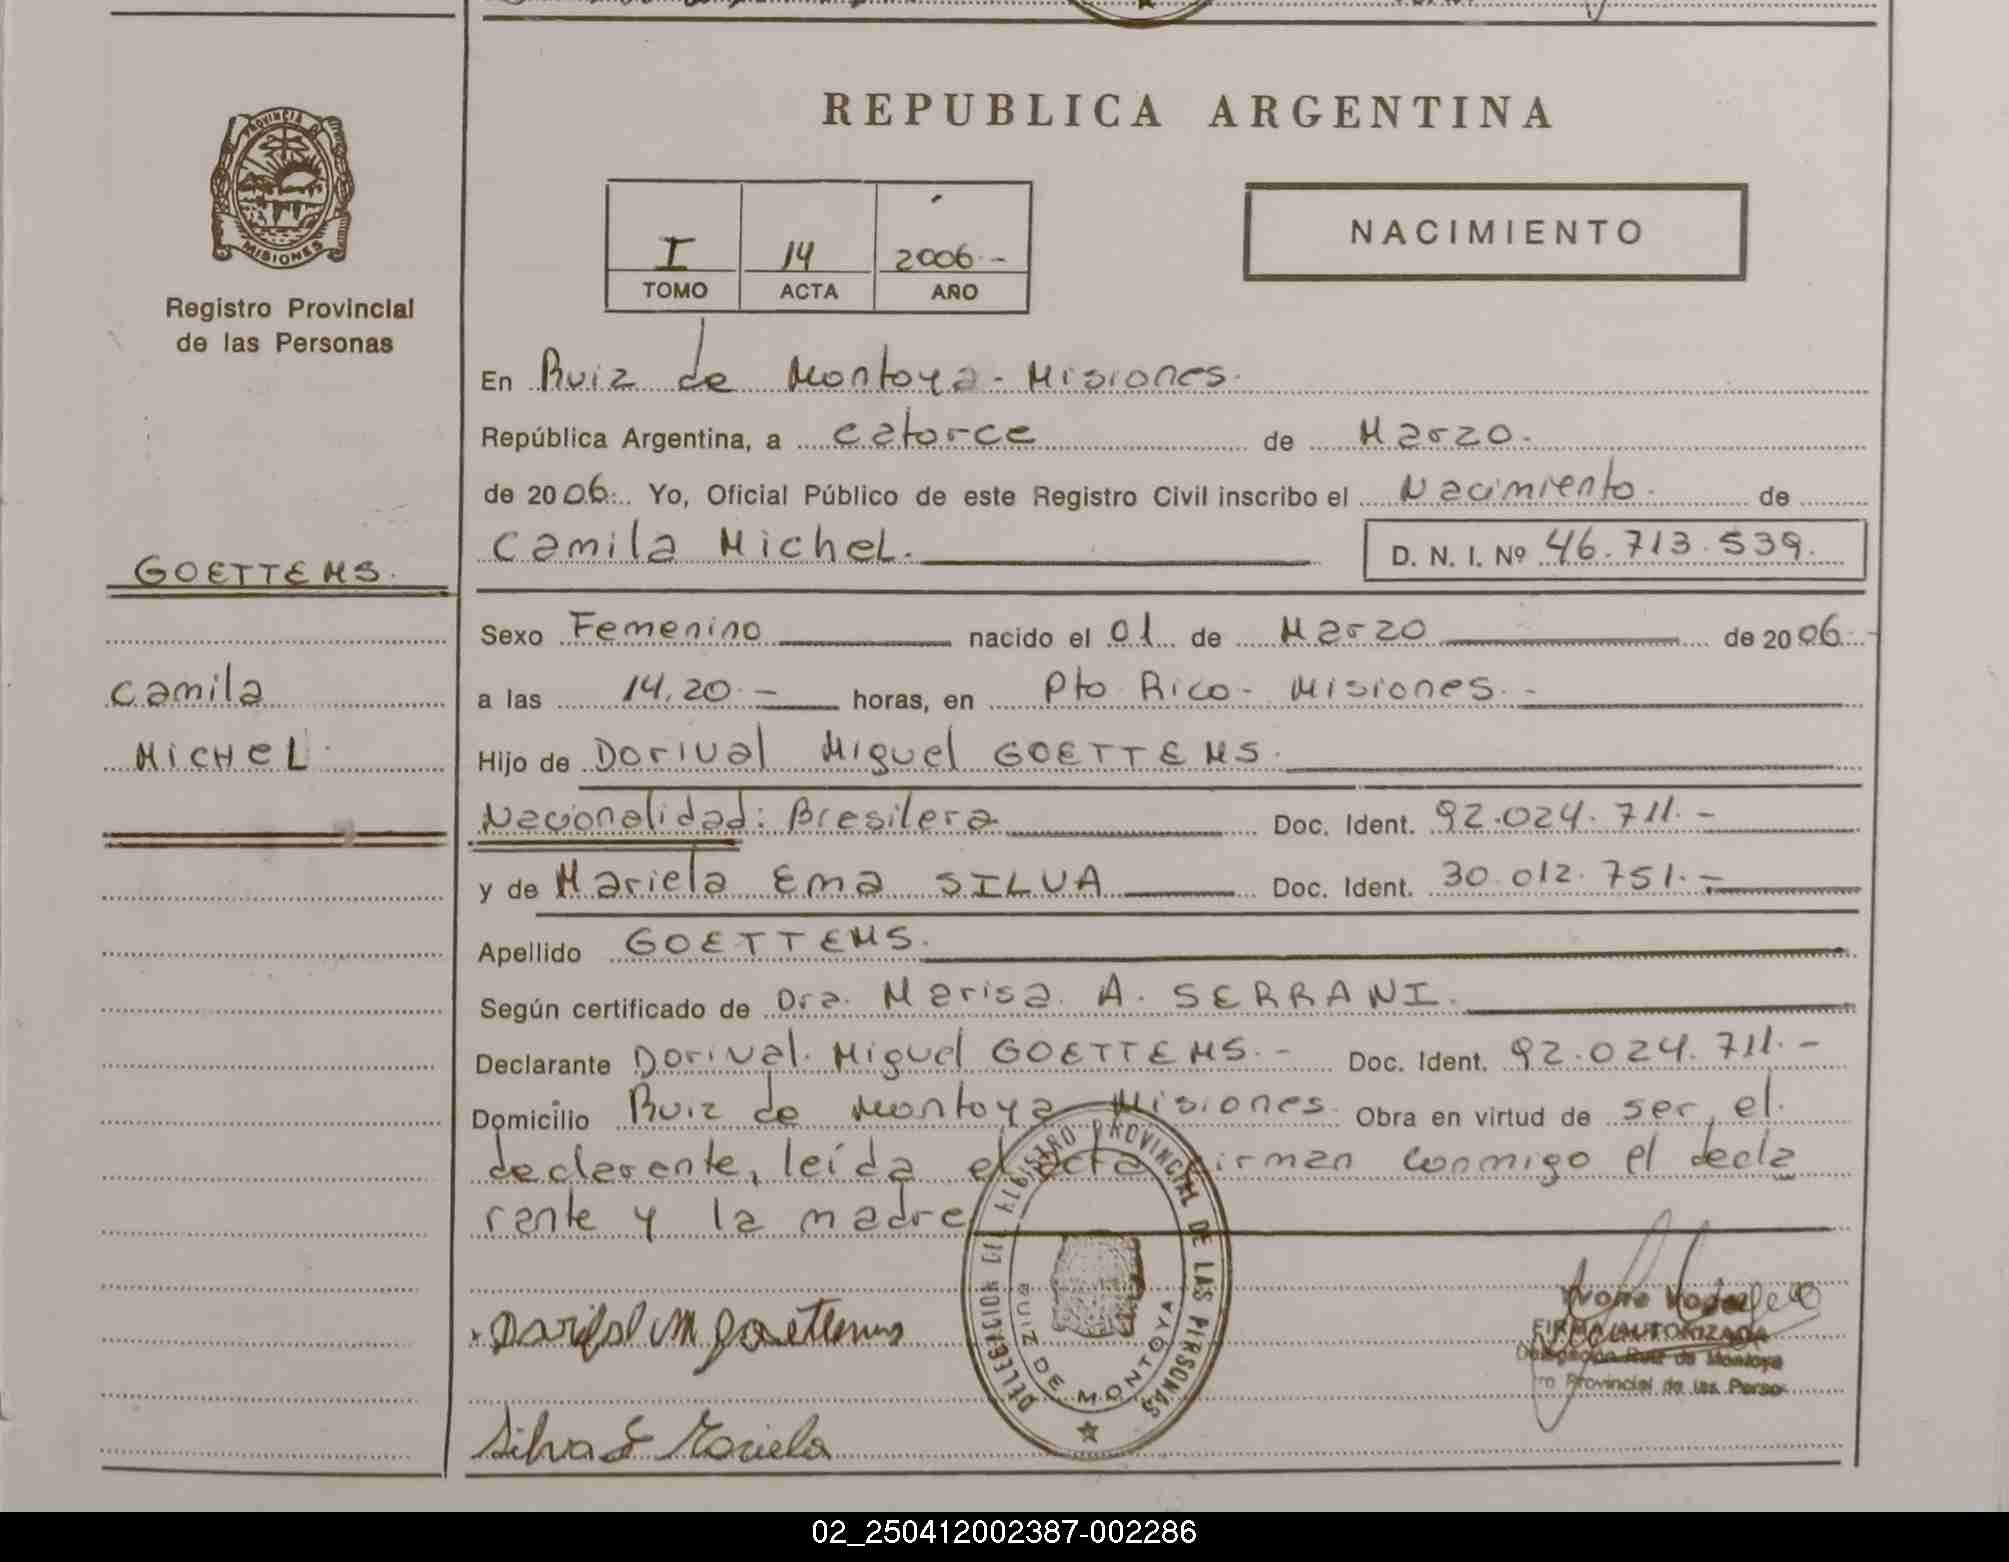 REPUBLICA ARGENTINA
PROVINCIA D
MISIONES
Registro Provincial
de las Personas
I 14 2006.-
TOMO ACTA AÑO
NACIMIENTO
En Ruiz de Montoya - Misiones.
República Argentina, a catorce de Marzo.
de 2006. Yo, Oficial Público de este Registro Civil inscribo el Nacimiento. de
Camila Michel.
D. N. I. Nº 46.713.539.
GOETTEMS.
Camila
MICHEL
Sexo Femenino nacido el 01 de Marzo de 2006.-
a las 14,20.- horas, en Pto Rico - Misiones.-
Hijo de Dorival Miguel GOETTEMS.
Nacionalidad: Brasilera Doc. Ident. 92.024.711.-
y de Mariela Ema SILVA Doc. Ident. 30.012.751.-
Apellido GOETTEMS.
Según certificado de Dra. Marisa A. SERRANI.
Declarante Dorival Miguel GOETTEMS.- Doc. Ident. 92.024.711.-
Domicilio Ruiz de Montoya Misiones. Obra en virtud de ser el
declarante, leída el acta firman conmigo el decla
rante y la madre
DELEGACION REGISTRO PROVINCIAL DE LAS PERSONAS
RUIZ DE MONTOYA
Dorival M Goettems
Silva E Mariela
Ivone
FIRMA AUTORIZADA
Delegación Ruiz de Montoya
Provincial de las Perso
02_250412002387-002286